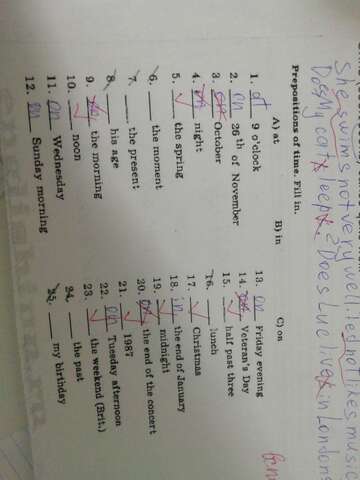 She swims not very well. Ted not likes music
Does My cat sleep? Does Luc live in London
Prepositions of time. Fill in.
A) at B) in C) on
1. at 9 o'clock
2. on 26 th of November
3. October
4. on night
5. the spring
6. the moment
7. the present
8. his age
9. the morning
10. noon
11. on Wednesday
12. on Sunday morning
13. on Friday evening
14. Veteran's Day
15. half past three
16. lunch
17. Christmas
18. in the end of January
19. midnight
20. the end of the concert
21. 1987
22. on Tuesday afternoon
23. the weekend (Brit.)
24. the past
25. my birthday